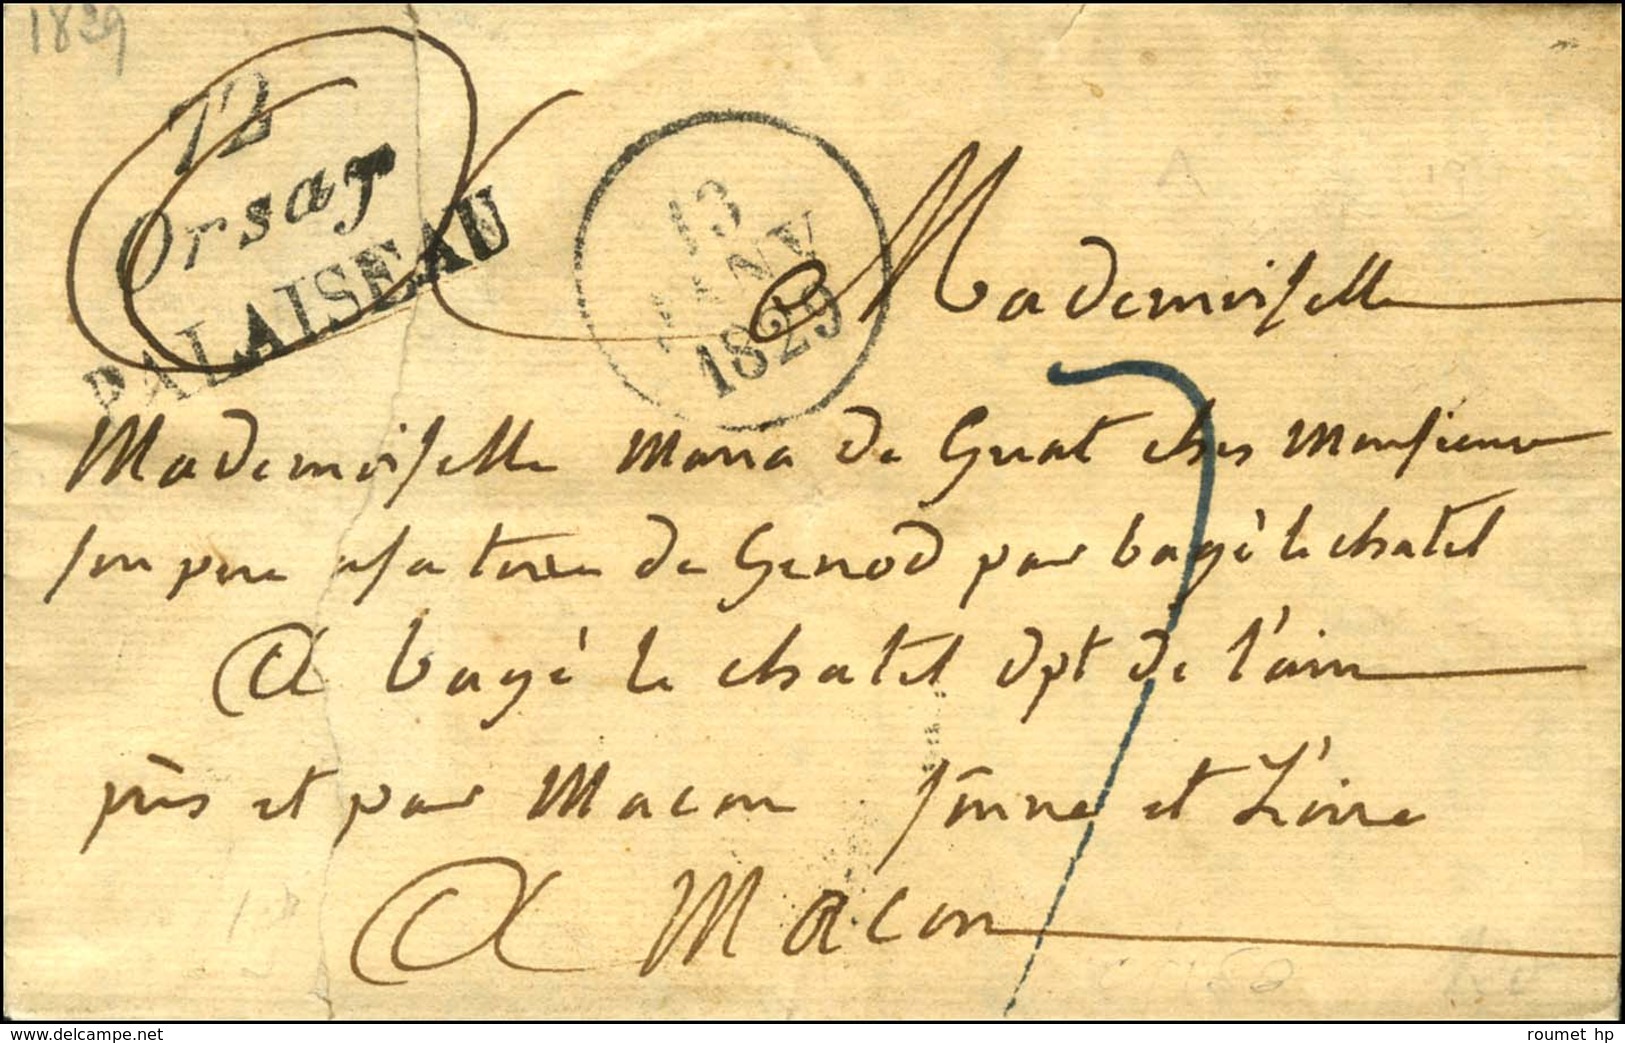 1839
72
Orsay
PALAISEAU
13
JANV
1829
Mademoiselle
Mademoiselle Maria de Gruat ches Monsieur
son pere a sa terre de Genod par bagé le chatel
A bagé le chatel dpt de l'ain
près et par Macon Sônne et Loire
A Macon
7
www.delcampe.net
roumet hp